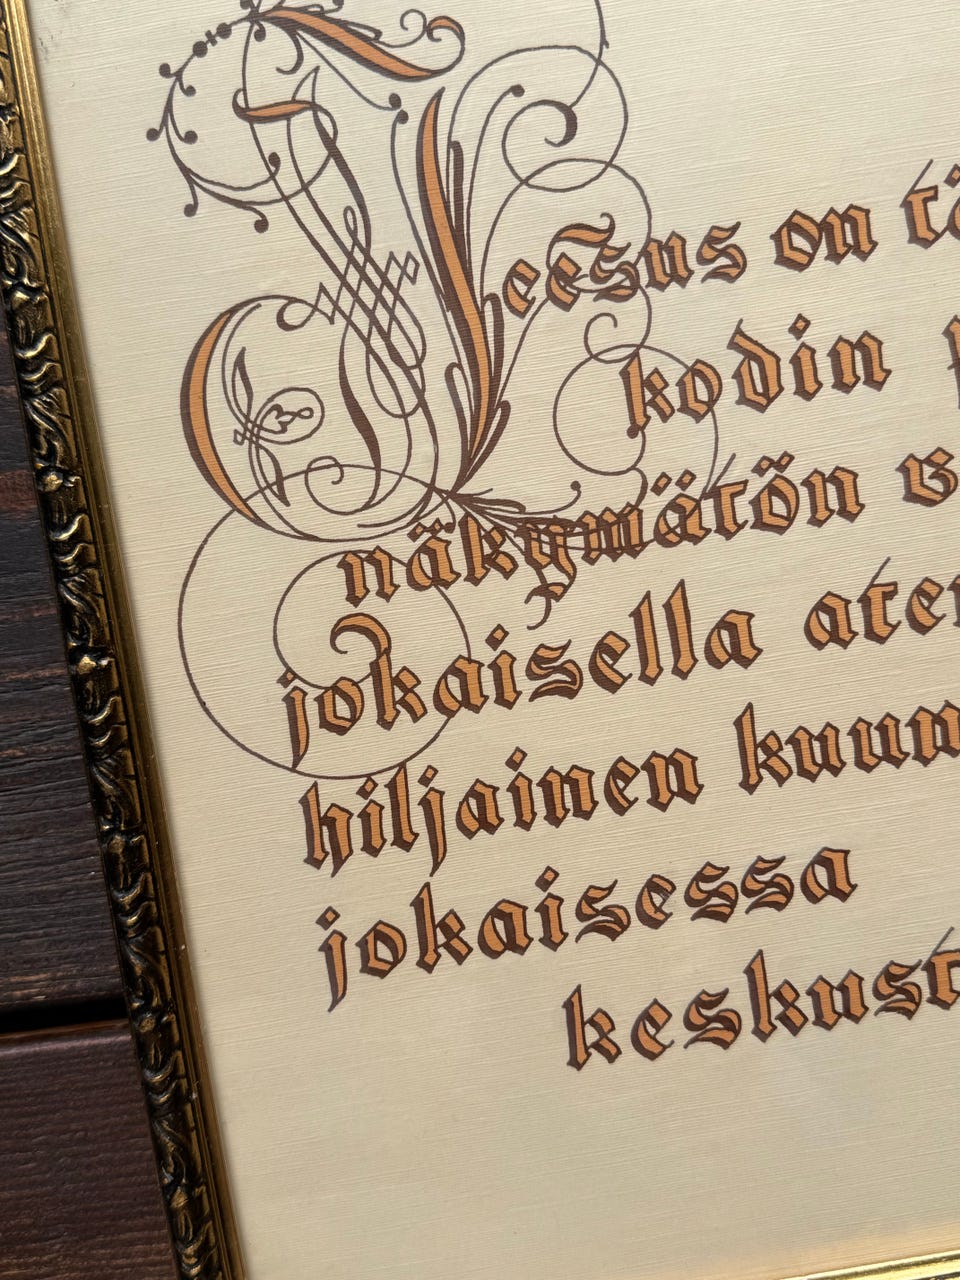 Jeesus on tä
kodin
näkymätön v
jokaisella ate
hiljainen kuun
jokaisessa
keskust